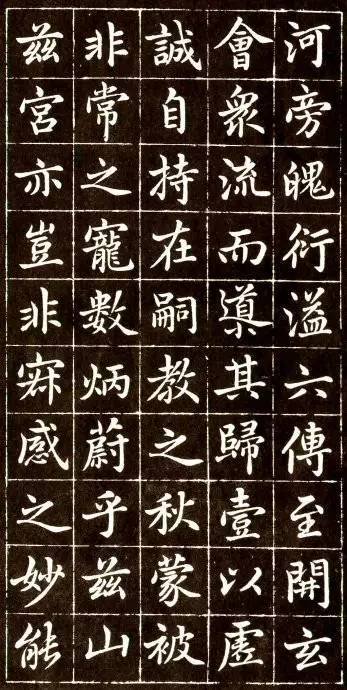 河旁魄衍溢六傳至開玄
會衆流而導其歸壹以虛
誠自持在嗣教之秋蒙被
非常之寵數炳蔚乎兹山
兹宮亦豈非寂感之妙能